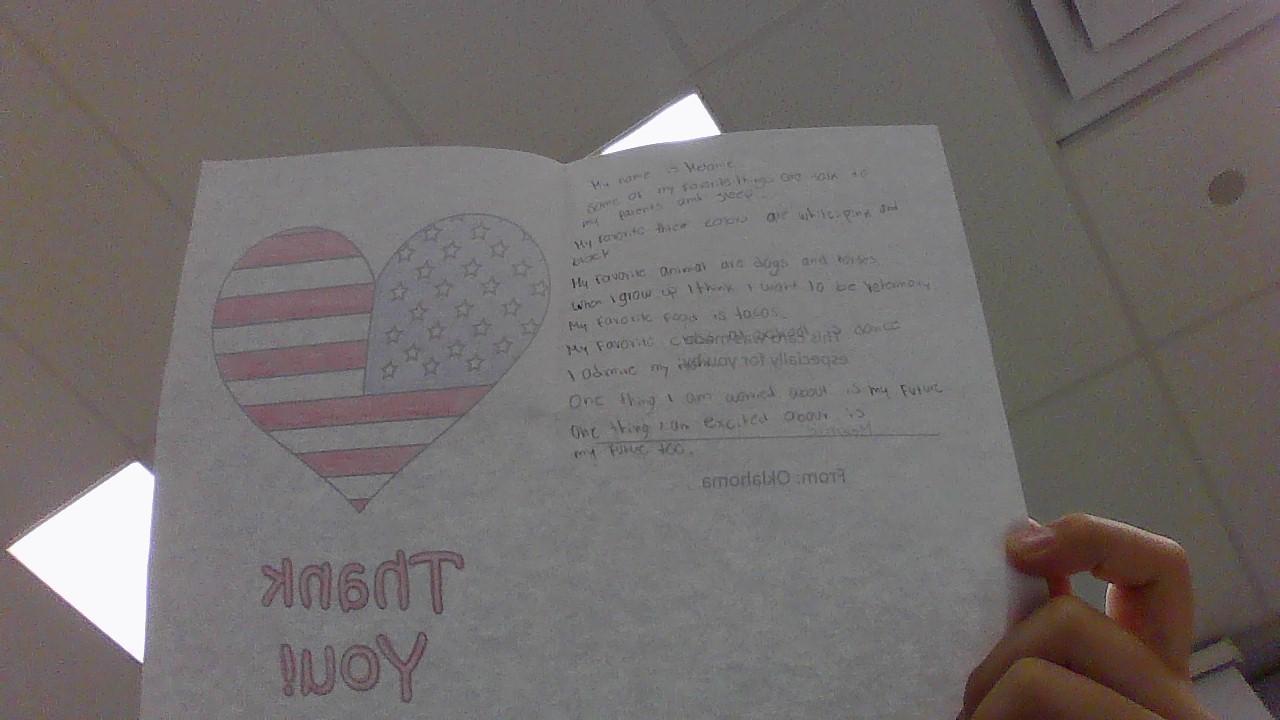 My name is Melanie
Some of my favorite things are talk to
my parents and sleep.
My favorite thier colors are white, pink and
black
My favorite animal are dogs and horses.
When I grow up I think I want to be Veterinary.
My favorite food is tacos.
My favorite class at school is dance
I admire my
One thing I am worried about is my future
One thing I am excited about is
my future too.
This card was made
especially for you by:
Melanie
From: Oklahoma
Thank
You!